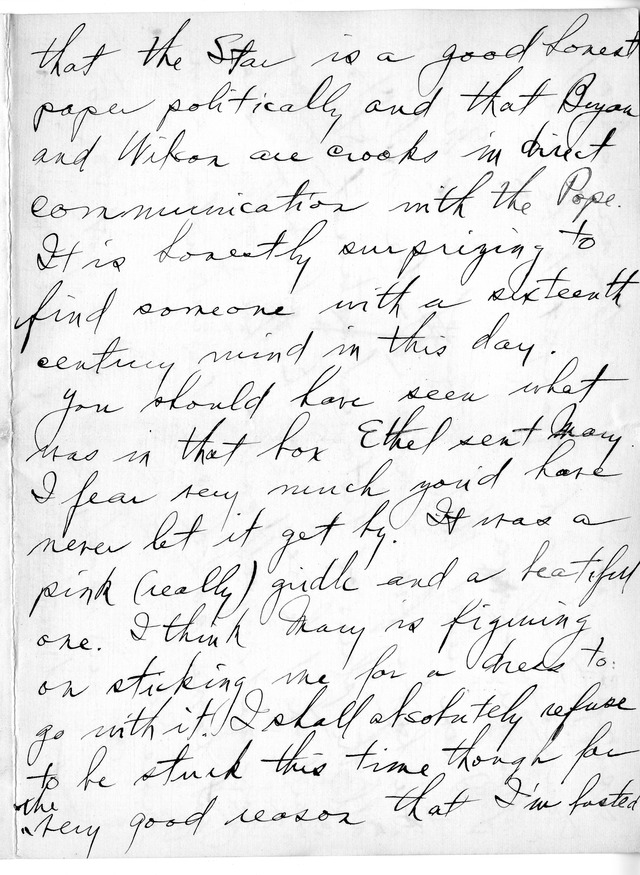 that the Star is a good honest
paper politically and that Bryan
and Wilson are crooks in direct
communication with the Pope.
It is honestly surprizing to
find someone with a sixteenth
century mind in this day.
You should have seen what
was in that box Ethel sent Mary.
I fear very much you'd have
never let it get by. It was a
pink (really) girdle and a beatiful
one. I think Mary is figuring
on sticking me for a dress to
go with it. I shall absolutely refuse
to be stuck this time though for
the
very good reason that I'm busted